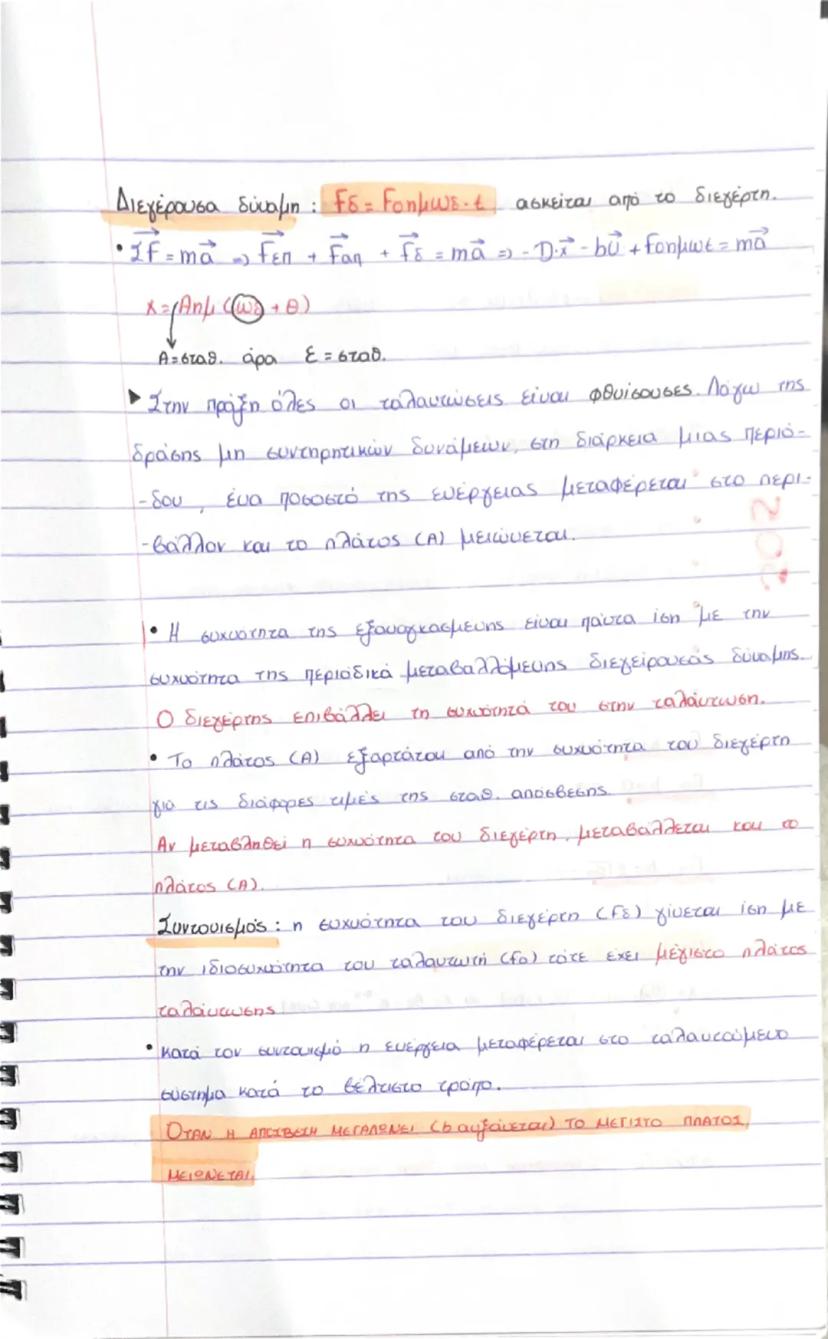 Διεγέρουσα δύναμη : Fδ = Foημωδ·t ασκείται από το διεγέρτη.
• ΣF = ma => Fεπ + Fαπ + Fδ = ma => -D·x - bυ + Foημωt = ma
x = Αημ (ωδ + θ)
A=σταθ. άρα Ε = σταθ.
▶ Στην πράξη όλες οι ταλαντώσεις είναι φθίνουσες. Λόγω της
δράσης μη συντηρητικών δυνάμεων, στη διάρκεια μιας περιό-
-δου, ένα ποσοστό της ενέργειας μεταφέρεται στο περι-
-βάλλον και το πλάτος (Α) μειώνεται.
• Η συχνότητα της εξαναγκασμενης είναι πάντα ίση με την
συχνότητα της περιοδικά μεταβαλλόμενης διεγείρουσας δύναμης.
Ο διεγέρτης επιβάλλει τη συχνότητά του στην ταλάντωση.
• Το πλάτος (Α) εξαρτάται από την συχνότητα του διεγέρτη
για τις διάφορες τιμές της σταθ. απόσβεσης.
Αν μεταβληθεί η συχνότητα του διεγέρτη, μεταβάλλεται και το
πλάτος (Α).
Συντονισμός : η συχνότητα του διεγέρτη (fδ) γίνεται ίση με
την ιδιοσυχνότητα του ταλαντωτή (fo) τότε έχει μέγιστο πλάτος
ταλάντωσης
• Κατά τον συντονισμό η ενέργεια μεταφέρεται στο ταλαντούμενο
σύστημα κατά το βέλτιστο τρόπο.
ΟΤΑΝ Η ΑΠΟΣΒΕΣΗ ΜΕΓΑΛΩΝΕΙ (b αυξάνεται) ΤΟ ΜΕΓΙΣΤΟ ΠΛΑΤΟΣ
ΜΕΙΩΝΕΤΑΙ